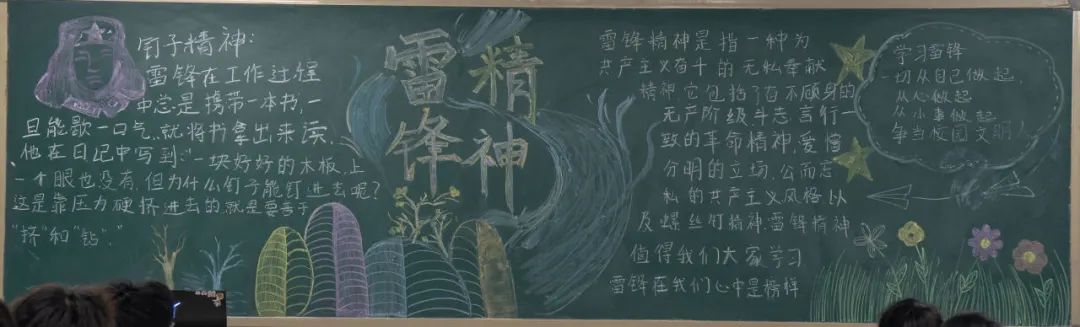 钉子精神:
雷锋在工作过程
中总是携带一本书,一
旦能歇一口气,就将书拿出来读,
他在日记中写到:"一块好好的木板,上
一个眼也没有,但为什么钉子能钉进去呢?
这是靠压力硬挤进去的,就是要善于
"挤"和"钻"."
雷锋
精神
雷锋精神是指一种为
共产主义奋斗的无私奉献
精神,它包括了奋不顾身的
无产阶级斗志,言行一
致的革命精神,爱憎
分明的立场,公而忘
私的共产主义风格以
及螺丝钉精神.雷锋精神
值得我们大家学习
雷锋在我们心中是榜样
学习雷锋
一切从自己做起,
从心做起
从小事做起
争当校园文明!